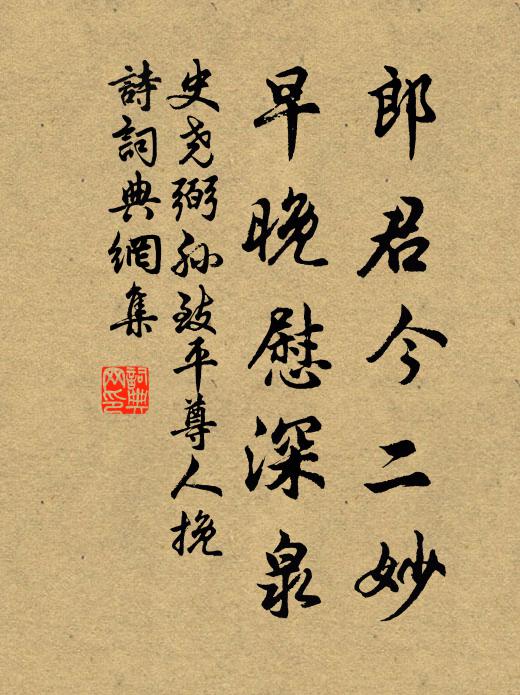 郎君今二妙
早晚慰深泉
史尧弼孙致平尊人挽
詩詞典網集
詞典网印